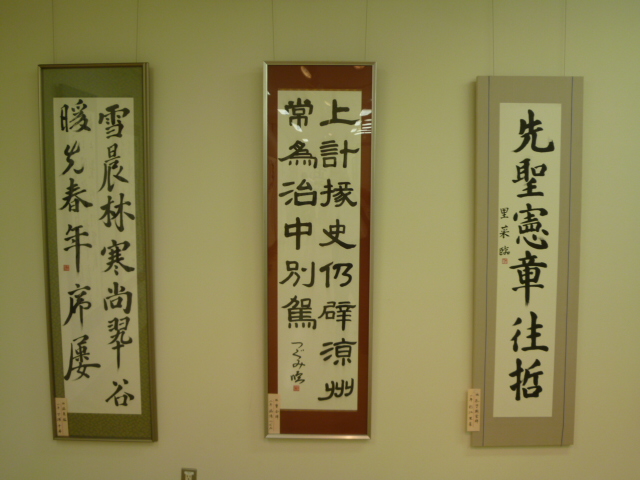 先聖憲章往哲
里菜臨
上計掾史仍辟涼州
常為治中別駕
つぐみ臨
雪晨林寒尚翠谷
暖先春年席屡